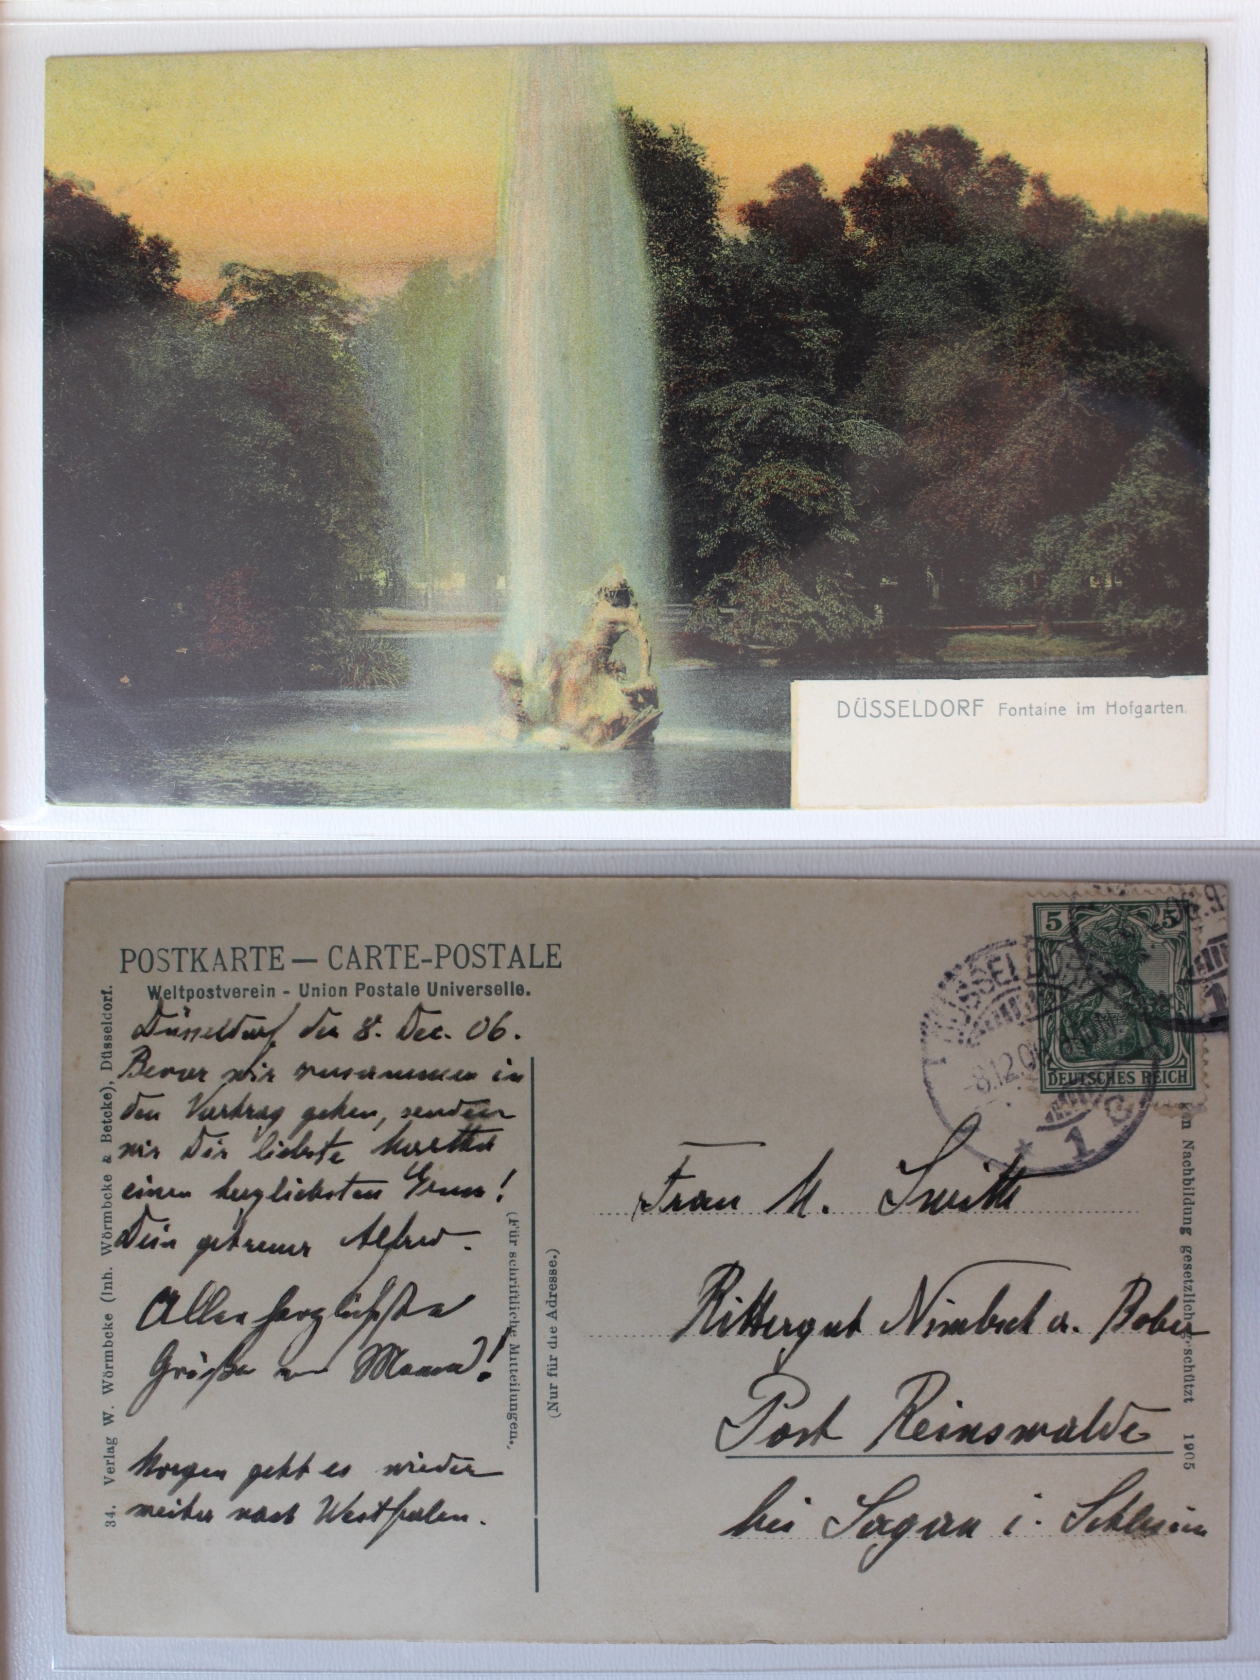 DÜSSELDORF Fontaine im Hofgarten.
POSTKARTE — CARTE-POSTALE
Weltpostverein - Union Postale Universelle.
Düsseldorf den 8. Dec. 06.
Bevor wir zusammen in
den Vortrag gehen, senden
wir Dir liebste Martha
einen herzlichsten Gruss!
Dein getreuer Alfred.
Allerherzlichste
Grüße von Mama!
Morgen geht es wieder
weiter nach Westfalen.
34. Verlag W. Wörmbcke (Inh. Wörmbcke & Betcke), Düsseldorf.
(Für schriftliche Mitteilungen.)
(Nur für die Adresse.)
5 5
DEUTSCHES REICH
DÜSSELDORF
8.12.06
1
Frau M. Smith
Rittergut Nimbsch a. Bober
Post Reinswalde
bei Sagan i. Schlesien
Nachbildung gesetzlich geschützt 1905